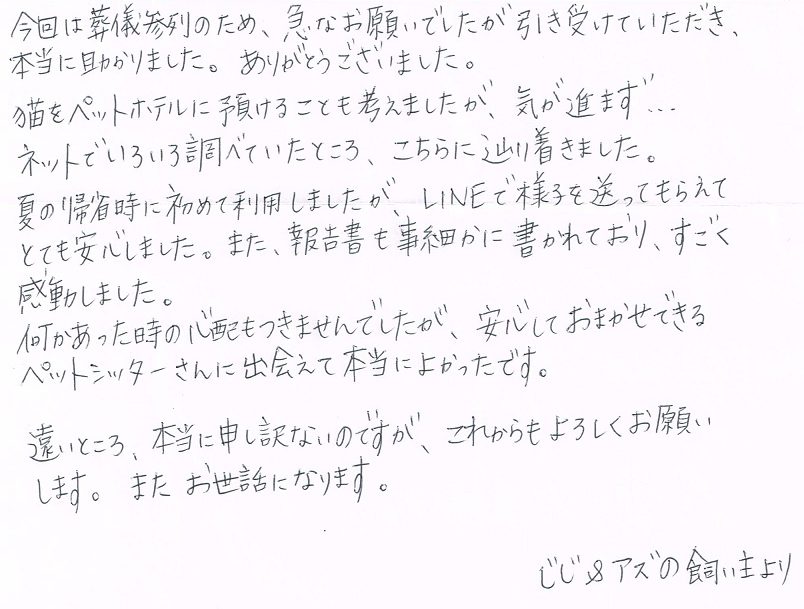 今回は葬儀参列のため、急なお願いでしたが引き受けていただき、
本当に助かりました。ありがとうございました。
猫をペットホテルに預けることも考えましたが、気が進まず…
ネットでいろいろ調べていたところ、こちらに辿り着きました。
夏の帰省時に初めて利用しましたが、LINEで様子を送ってもらえて
とても安心しました。また、報告書も事細かに書かれており、すごく
感動しました。
何かあった時の心配もつきませんでしたが、安心しておまかせできる
ペットシッターさんに出会えて本当によかったです。
遠いところ、本当に申し訳ないのですが、これからもよろしくお願い
します。また お世話になります。
じじ&アズの飼い主より